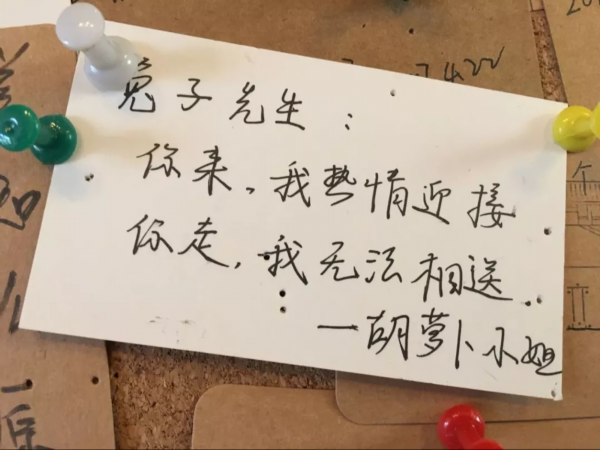 兔子先生:
你来,我热情迎接
你走,我无法相送.
一胡萝卜小姐
422
个